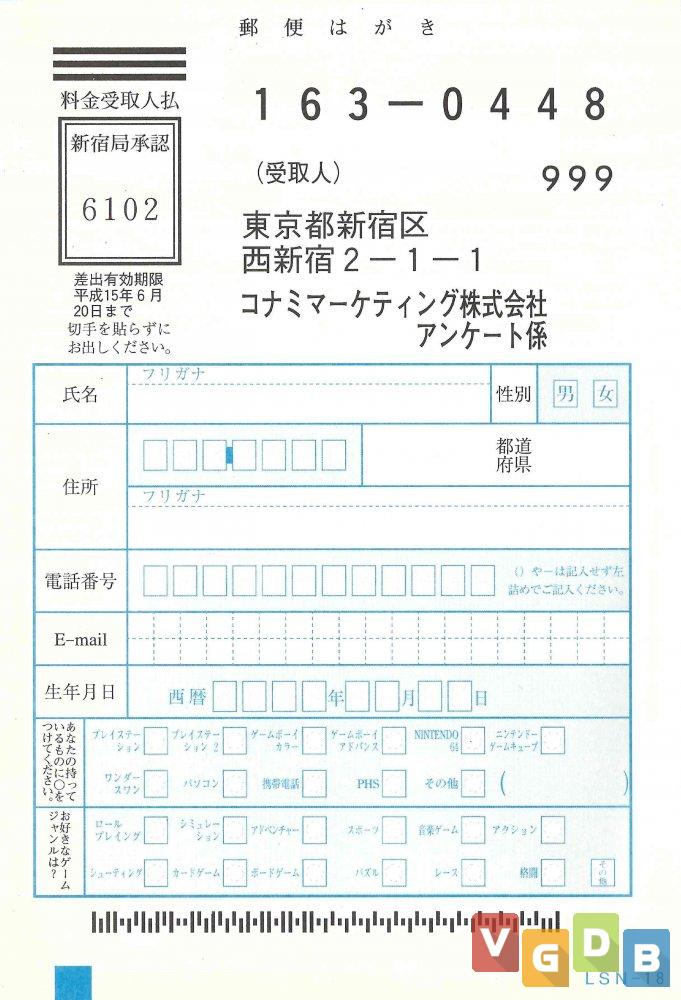 郵便はがき
料金受取人払
新宿局承認
6102
差出有効期限
平成15年6月
20日まで
切手を貼らずに
お出しください。
163-0448
(受取人) 999
東京都新宿区
西新宿2-1-1
コナミマーケティング株式会社
アンケート係
氏名
フリガナ
性別 男 女
住所
都道
府県
フリガナ
電話番号
()や-は記入せず左
詰めでご記入ください。
E-mail
生年月日
西暦 年 月 日
あなたの持って
いるものに○を
つけてください。
プレイステー
ション
プレイステー
ション2
ゲームボーイ
カラー
ゲームボーイ
アドバンス
NINTENDO
64
ニンテンドー
ゲームキューブ
ワンダー
スワン
パソコン
携帯電話
PHS
その他 ( )
お好きなゲーム
ジャンルは?
ロール
プレイング
シミュレー
ション
アドベンチャー
スポーツ
音楽ゲーム
アクション
シューティング
カードゲーム
ボードゲーム
パズル
レース
格闘
その他
VGDB
LSN-18